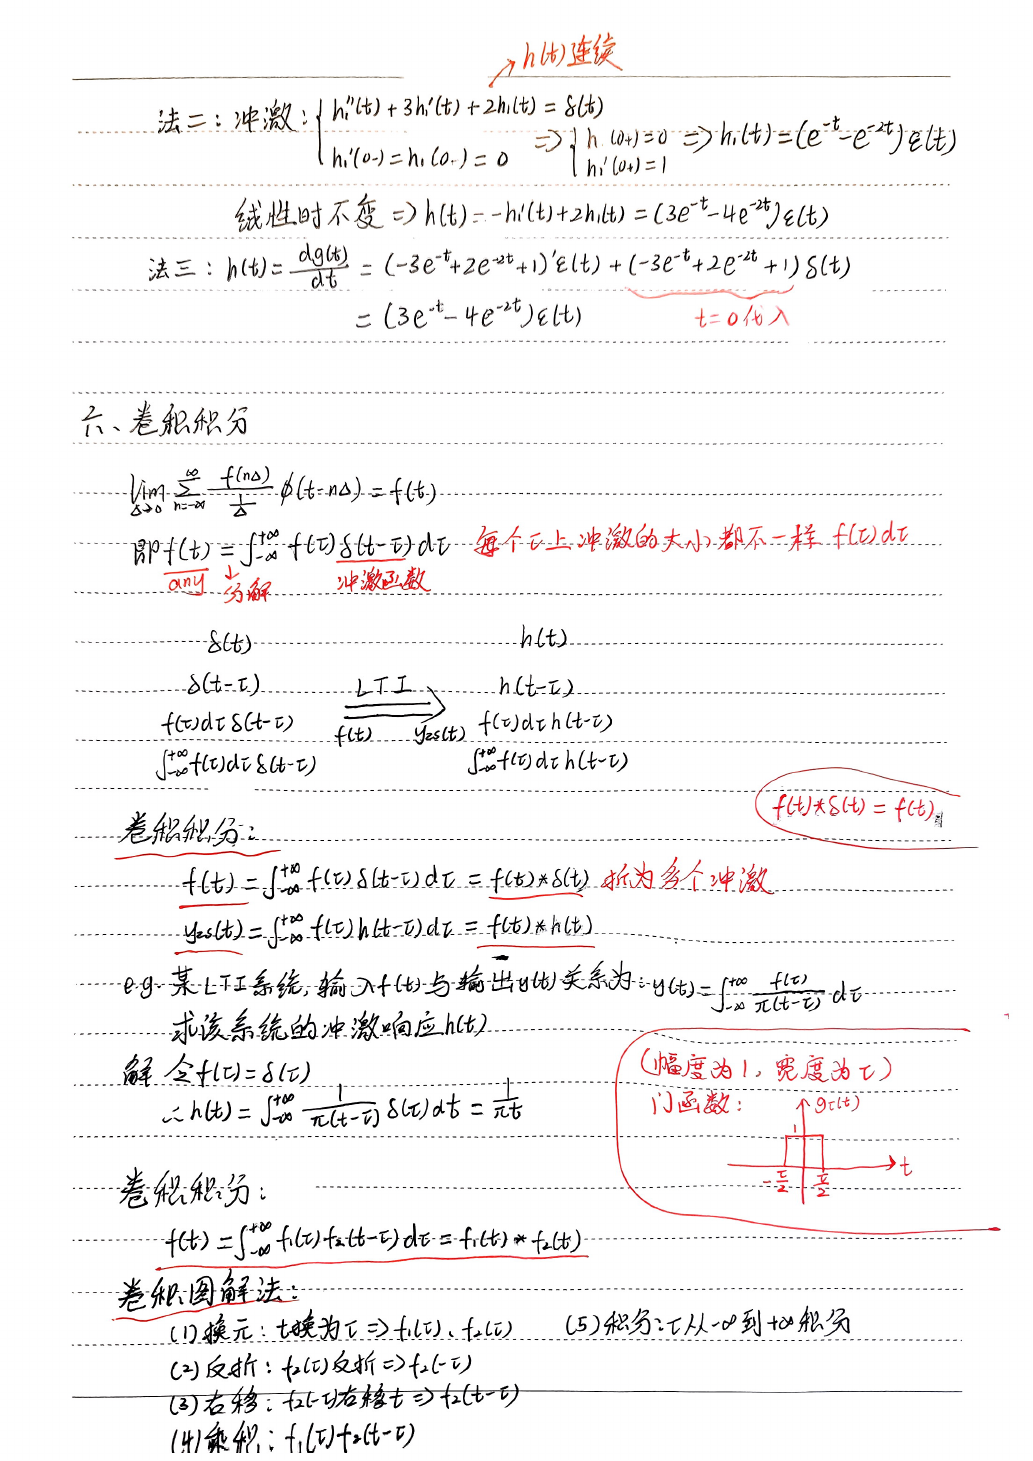 h(t)连续
法二：冲激：{ h₁''(t)+3h₁'(t)+2h₁(t)=δ(t)
h₁'(0-)=h₁(0-)=0 ⇒ { h (0+)=0 h₁'(0+)=1 ⇒ h₁(t)=(e^{-t}-e^{-2t})ε(t)
线性时不变 ⇒ h(t)=-h₁'(t)+2h₁(t)=(3e^{-t}-4e^{-2t})ε(t)
法三：h(t)=dg(t)/dt =(-3e^{-t}+2e^{-2t}+1)'ε(t)+(-3e^{-t}+2e^{-2t}+1)δ(t)
=(3e^{-t}-4e^{-2t})ε(t) t=0代入
六、卷积积分
lim_{Δ→0} Σ_{n=-∞}^{∞} f(nΔ)/(1/Δ) φ(t-nΔ)=f(t)
即 f(t)=∫_{-∞}^{+∞} f(τ)δ(t-τ)dτ 每个τ上冲激的大小都不一样 f(τ)dτ
any ↓分解 冲激函数
δ(t) h(t)
δ(t-τ) LTI h(t-τ)
f(τ)dτδ(t-τ) f(t) ⇒ yzs(t) f(τ)dτh(t-τ)
∫_{-∞}^{+∞}f(τ)dτδ(t-τ) ∫_{-∞}^{+∞}f(τ)dτh(t-τ)
f(t)*δ(t)=f(t)
卷积积分：
f(t)=∫_{-∞}^{+∞} f(τ)δ(t-τ)dτ=f(t)*δ(t) 拆为多个冲激
yzs(t)=∫_{-∞}^{+∞} f(τ)h(t-τ)dτ=f(t)*h(t)
e.g. 某LTI系统,输入f(t)与输出y(t)关系为：y(t)=∫_{-∞}^{+∞} f(τ)/π(t-τ) dτ
求该系统的冲激响应h(t)
解 令f(τ)=δ(τ)
∴h(t)=∫_{-∞}^{+∞} 1/π(t-τ) δ(τ)dτ=1/πt
(幅度为1，宽度为τ)
门函数：
gτ(t)
1
-τ/2 τ/2 t
卷积积分：
f(t)=∫_{-∞}^{+∞} f₁(τ)f₂(t-τ)dτ=f₁(t)*f₂(t)
卷积图解法：
(1)换元：t换为τ⇒f₁(τ)、f₂(τ) (5)积分：τ从-∞到+∞积分
(2)反折：f₂(τ)反折⇒f₂(-τ)
(3)右移：f₂(-τ)右移t⇒f₂(t-τ)
(4)乘积：f₁(τ)f₂(t-τ)